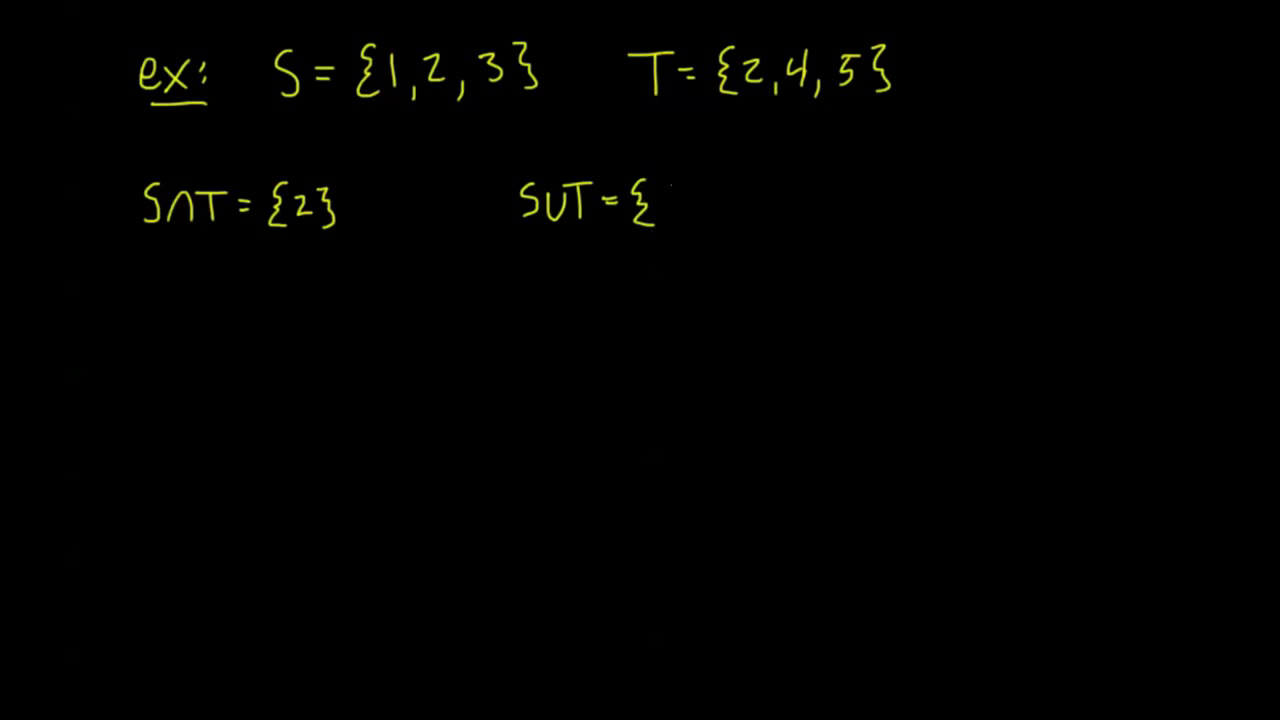 ex: S = {1, 2, 3} T = {2, 4, 5}
S∩T = {2} S∪T = {